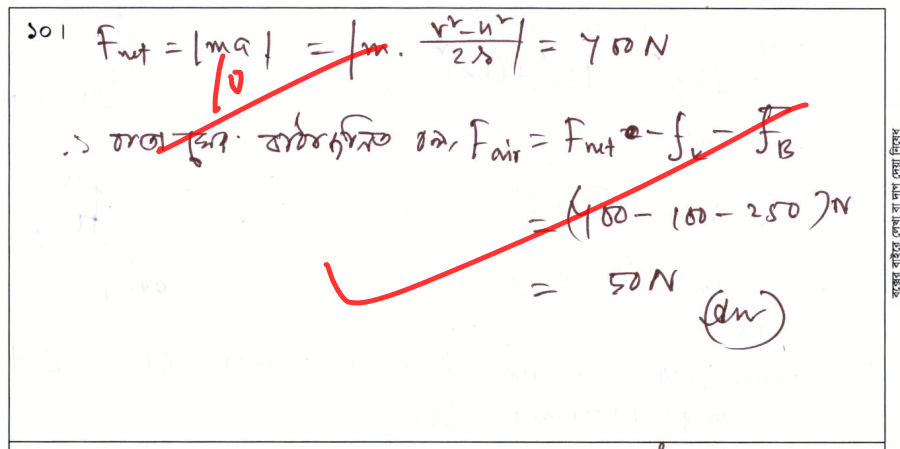 ১০। F_net = |ma| = |m. (v²-u²)/2s| = 400N
10
∴ বাতাসের বাধাজনিত বল, F_air = F_net - f_k - F_B
= (400 - 100 - 250)N
= 50N
(Ans)
বক্সের বাইরে লেখা বা দাগ দেয়া নিষেধ